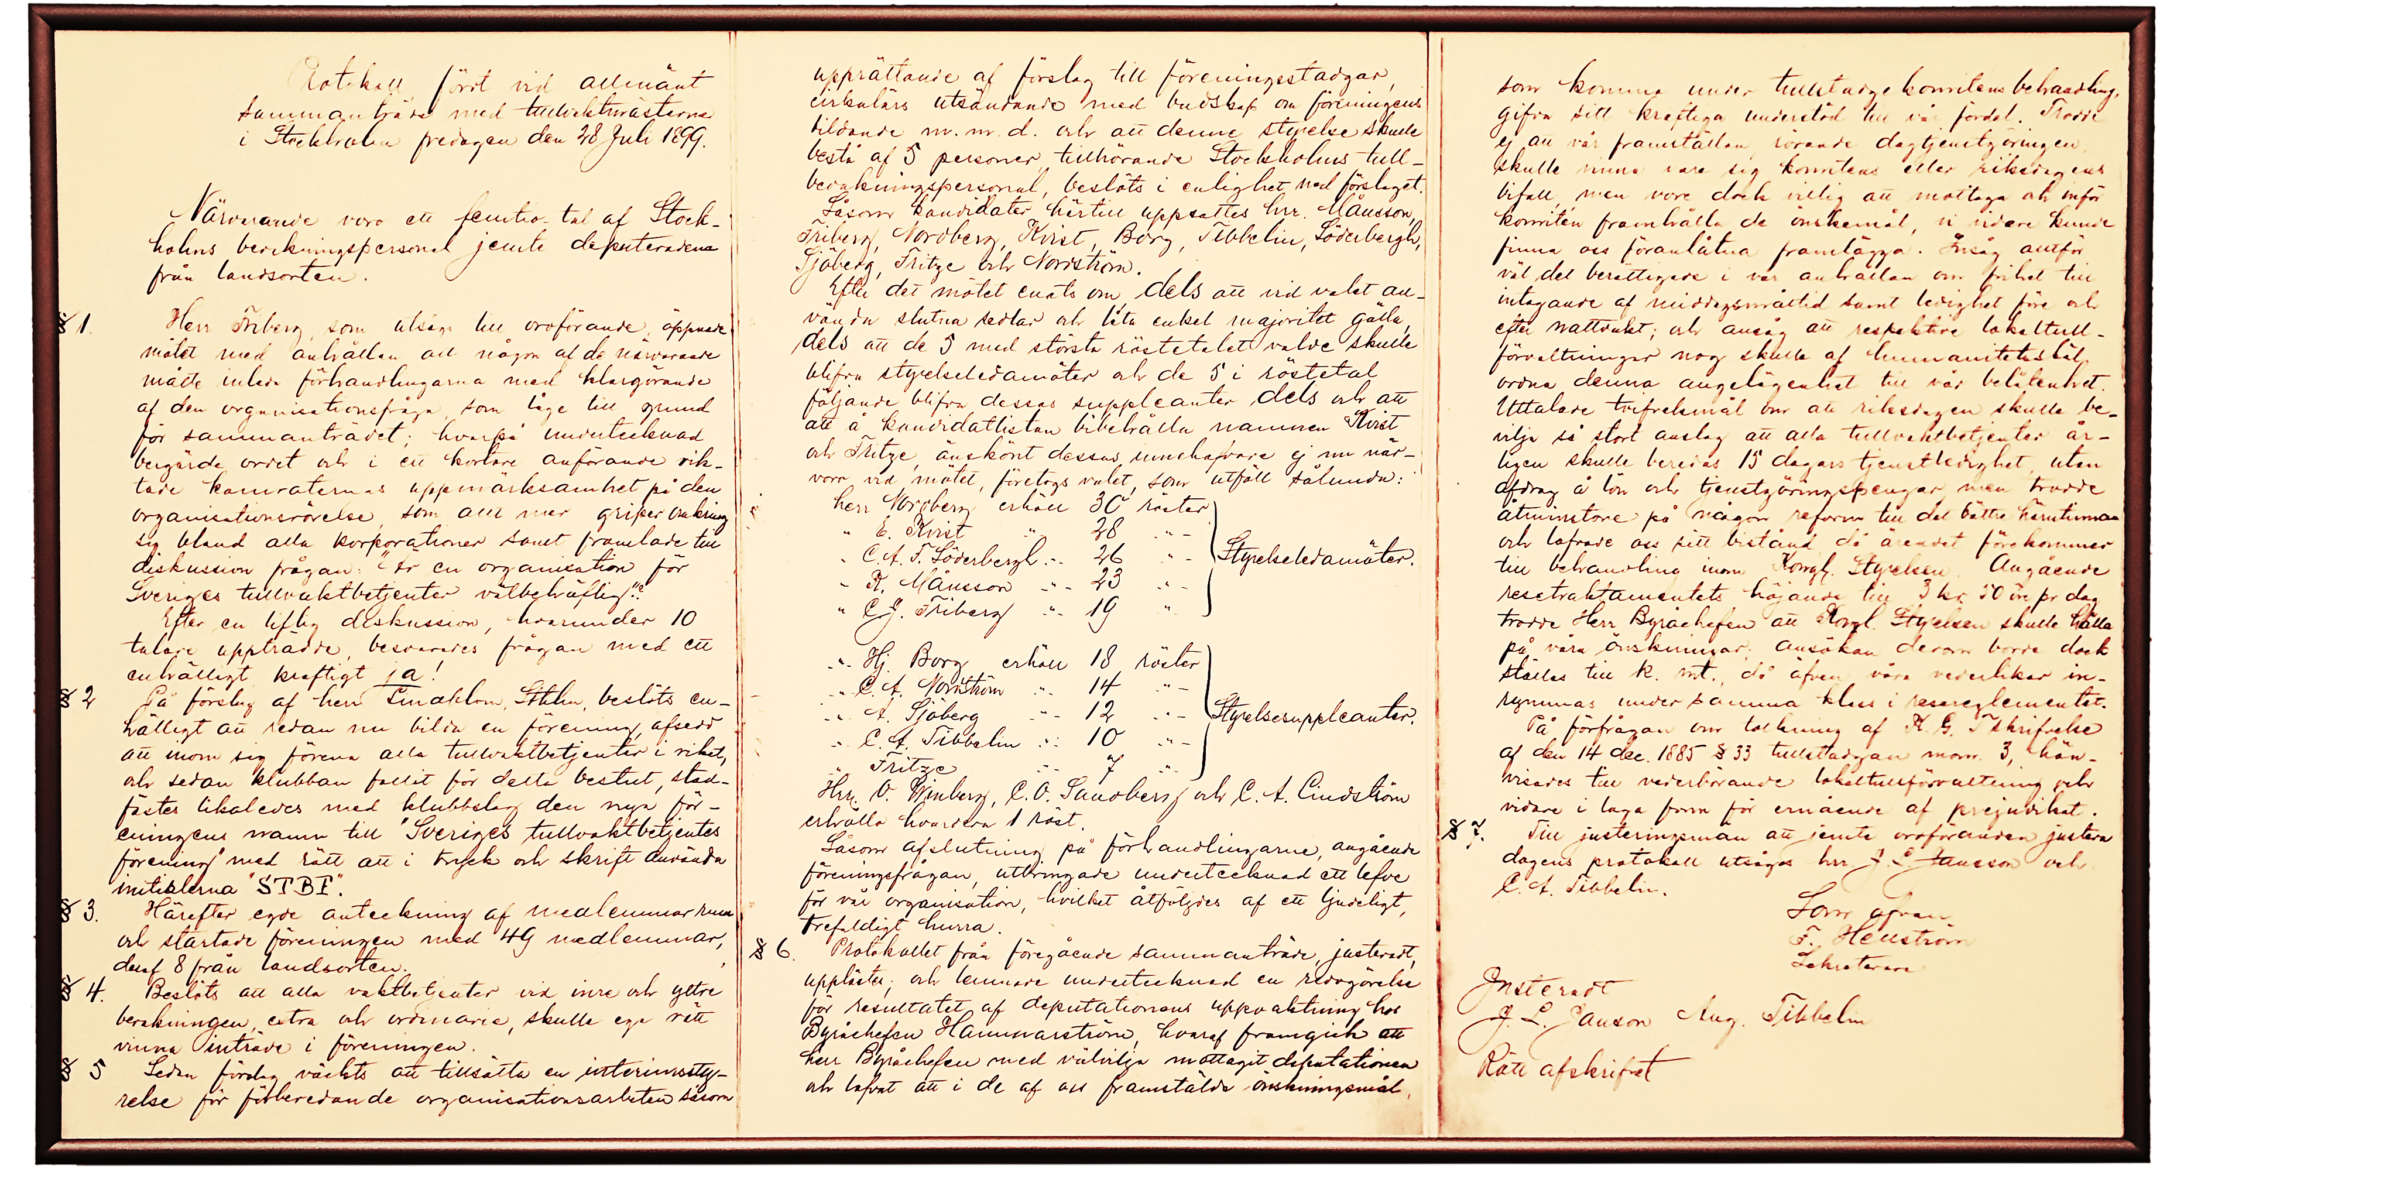 Protokoll, fördt vid allmänt
sammanträde med tullvaktmästarne
i Stockholm fredagen den 28 Juli 1899.
Närvarande voro ett femtio-tal af Stock-
holms bevakningspersonal jemte deputeradena
från landsorten.
§ 1. Herr Friberg, som utsågs till ordförande, öppnade
mötet med anhållan att någon af de närvarande
måtte inleda förhandlingarna med klargörande
af den organisationsfråga, som låge till grund
för sammanträdet; hvarpå undertecknad
begärde ordet och i ett kortare anförande rik-
tade kamraternas uppmärksamhet på den
organisationsrörelse, som allt mer griper omkring
sig bland alla korporationer samt framlade till
diskussion frågan: "Är en organisation för
Sveriges tullvaktbetjenter välbehöflig"?
Efter en liflig diskussion, hvarunder 10
talare uppträdde, besvarades frågan med ett
enhälligt kraftigt ja!
§ 2 På förslag af herr Smahlom, Sthlm, beslöts en-
hälligt att redan nu bilda en förening, afsedd
att inom sig förena alla tullvaktbetjenter i riket,
och sedan klubban fallit för detta beslut, stad-
fästes likaledes med klubbslag den nya för-
eningens namn till "Sveriges tullvaktbetjentes
förening" med rätt att i tryck och skrift använda
initialerna "STBF".
§ 3. Härefter egde anteckning af medlemmar rum
och startade föreningen med 49 medlemmar,
deraf 8 från landsorten.
§ 4. Beslöts att alla vaktbetjenter vid inre och yttre
bevakningen, extra och ordinarie, skulle ega rätt
vinna inträde i föreningen.
§ 5 Sedan förslag väckts att tillsätta en interimssty-
relse för förberedande organisationsarbeten såsom
upprättande af förslag till föreningsstadgar,
cirkulärs utsändande med budskap om föreningens
bildande m. m. d. och att denne styrelse skulle
bestå af 5 personer, tillhörande Stockholms tull-
bevakningspersonal, beslöts i enlighet med förslaget.
Såsom kandidater härtill uppsattes hrr. Månsson,
Friberg, Nordberg, Kvist, Borg, Tibbelin, Söderbergh,
Sjöberg, Fritze och Nordström.
Efter det mötet enats om, dels att vid valet an-
vända slutna sedlar och låta enkel majoritet gälla,
dels att de 5 med största röstetalet valde skulle
blifva styrelseledamöter och de 5 i röstetal
följande blifva dessas suppleanter dels och att
att å kandidatlistan bibehålla namnen Kvist
och Fritze, änskönt dessas innehafvare ej nu när-
voro vid mötet, företogs valet, som utföll sålunda:
herr Nordberg erhöll 30 röster
" E. Kvist " 28 " -
" C. A. F. Söderbergh " 26 " - Styrelseledamöter.
" K. Månsson " 23 " -
" C. J. Friberg " 19 "
" Hj. Borg erhöll 18 röster
" C. A. Nordström " 14 " -
" A. Sjöberg " 12 " - Styrelsesuppleanter.
" C. A. Tibbelin " 10 " -
" Fritze " 7 "
Hrr. O. Winberg, C. O. Sandberg och C. A. Lindström
erhöllo hvardera 1 röst.
Såsom afslutning på förhandlingarne, angående
föreningsfrågan, utbringade undertecknad ett lefve
för vår organisation, hvilket åtföljdes af ett ljudeligt,
trefaldigt hurra.
§ 6. Protokollet från föregående sammanträde, justeradt,
upplästes; och lemnade undertecknad en redogörelse
för resultatet af deputationens uppvaktning hos
Byråchefen Hammarström, hvaraf framgick att
herr Byråchefen med välvilja mottagit deputationen
och lofvat att i de af oss framstälda önskningsmål,
som komma under tullstadgekomiténs behandling,
gifva sitt kraftiga understöd till vår fördel. Trodde
ej att vår framställan, rörande dagtjenstgöringen,
skulle vinna vare sig komiténs eller riksdagens
bifall, men vore dock villig att mottaga och inför
komitén framhålla de önskemål, vi vidare kunde
finna oss föranlåtna framlägga. Ansåg
väl det berättigade i vår anhållan om frihet till
intagande af middagsmåltid samt ledighet före och
efter nattvakt; och ansåg att respektive lokaltull-
förvaltningar nog skulle af humanitetsskäl
ordna denna angelägenhet till vår belåtenhet.
Uttalade tvifvelsmål om att riksdagen skulle be-
vilja så stort anslag att alla tullvaktbetjenter år-
ligen skulle beredas 15 dagars tjenstledighet, utan
afdrag å lön och tjenstgöringspengar, men trodde
åtminstone på någon reform till det bättre härutinnan
och lofvade oss sitt bistånd då ärendet förekommer
till behandling inom Kongl. Styrelsen. Angående
resetraktamentets höjande till 3 kr. 50 öre pr dag
trodde Herr Byråchefen att Kongl. Styrelsen skulle hålla
på våra önskningar; ansökan derom borde dock
ställas till K. mt., då äfven våra vederlikar in-
rymmas under samma klass i resereglementet.
På förfrågan om tolkning af K. G. T skrifvelse
af den 14 dec. 1885 § 33 tullstadgan mom. 3, hän-
visades till vederbörande lokaltullförvaltning och
vidare i laga form för ernående af prejudikat.
§ 7. Till justeringsmän att jemte ordföranden justera
dagens protokoll utsågos hrr J. L. Jansson och
C. A. Tibbelin.
Som ofvan
F. Hellström
Sekreterare
Justeradt
J. L. Janson Aug. Tibbelin
Rätt afskrifvet